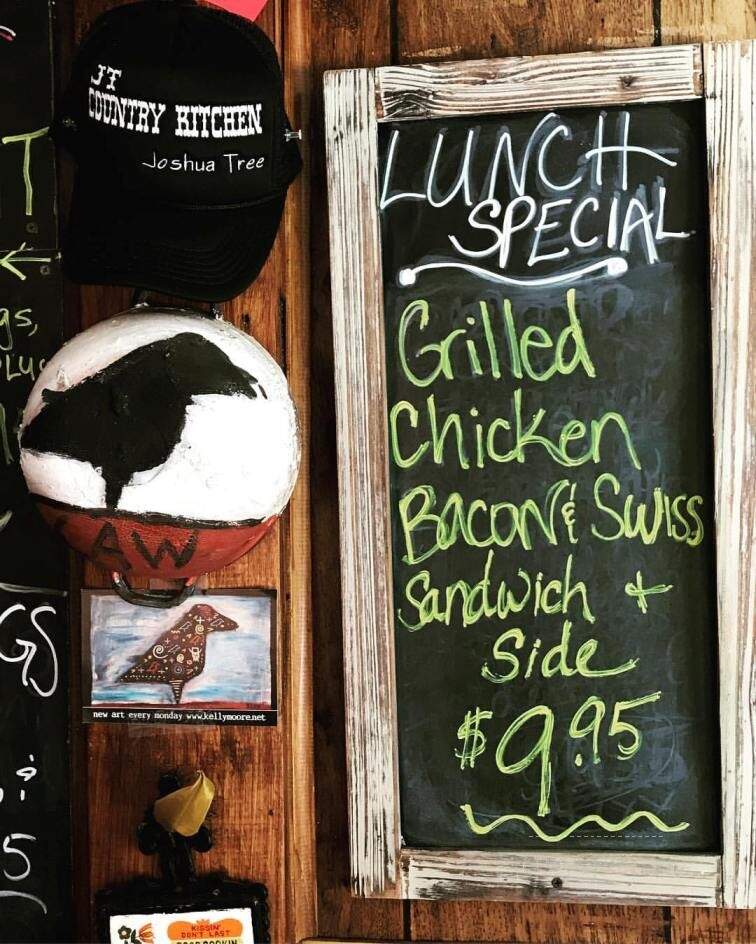 JT
COUNTRY KITCHEN
Joshua Tree
LUNCH
SPECIAL
Grilled
Chicken
BACON & SWISS
Sandwich +
Side
$9.95
T
gs,
AW
new art every monday www.kellymoore.net
GS
5
KISSIN'
DON'T LAST